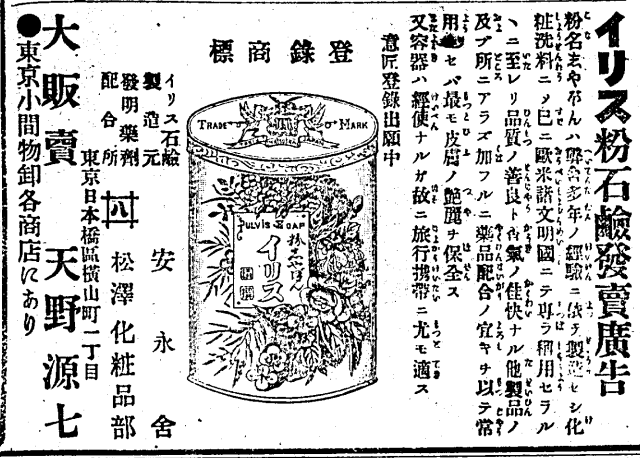 イリス粉石鹼發賣廣告
粉名まやぼんハ弊舎多年ノ經驗ニ依テ製造セシ化
粧洗料ニノ巳ニ歐米諸文明國ニテ專ラ稱用セラル
ヽニ至レリ品質ノ善良ト香氣ノ佳快ナル他製品ノ
及ブ所ニアラズ加フルニ藥品配合ノ宜キヲ以テ常
用セバ最モ皮膚ノ艶麗ヲ保全ス
又容器ハ輕便ナルガ故ニ旅行携帶ニ尤モ適ス
意匠登錄出願中
登錄商標
TRADE MARK
PULVIS SOAP
粉志やぼん
イリス
イリス石鹼
製造元
安永舍
發明藥劑
配合所
八
松澤化粧品部
東京日本橋區橫山町一丁目
大販賣 天野源七
●東京小間物卸各商店にあり